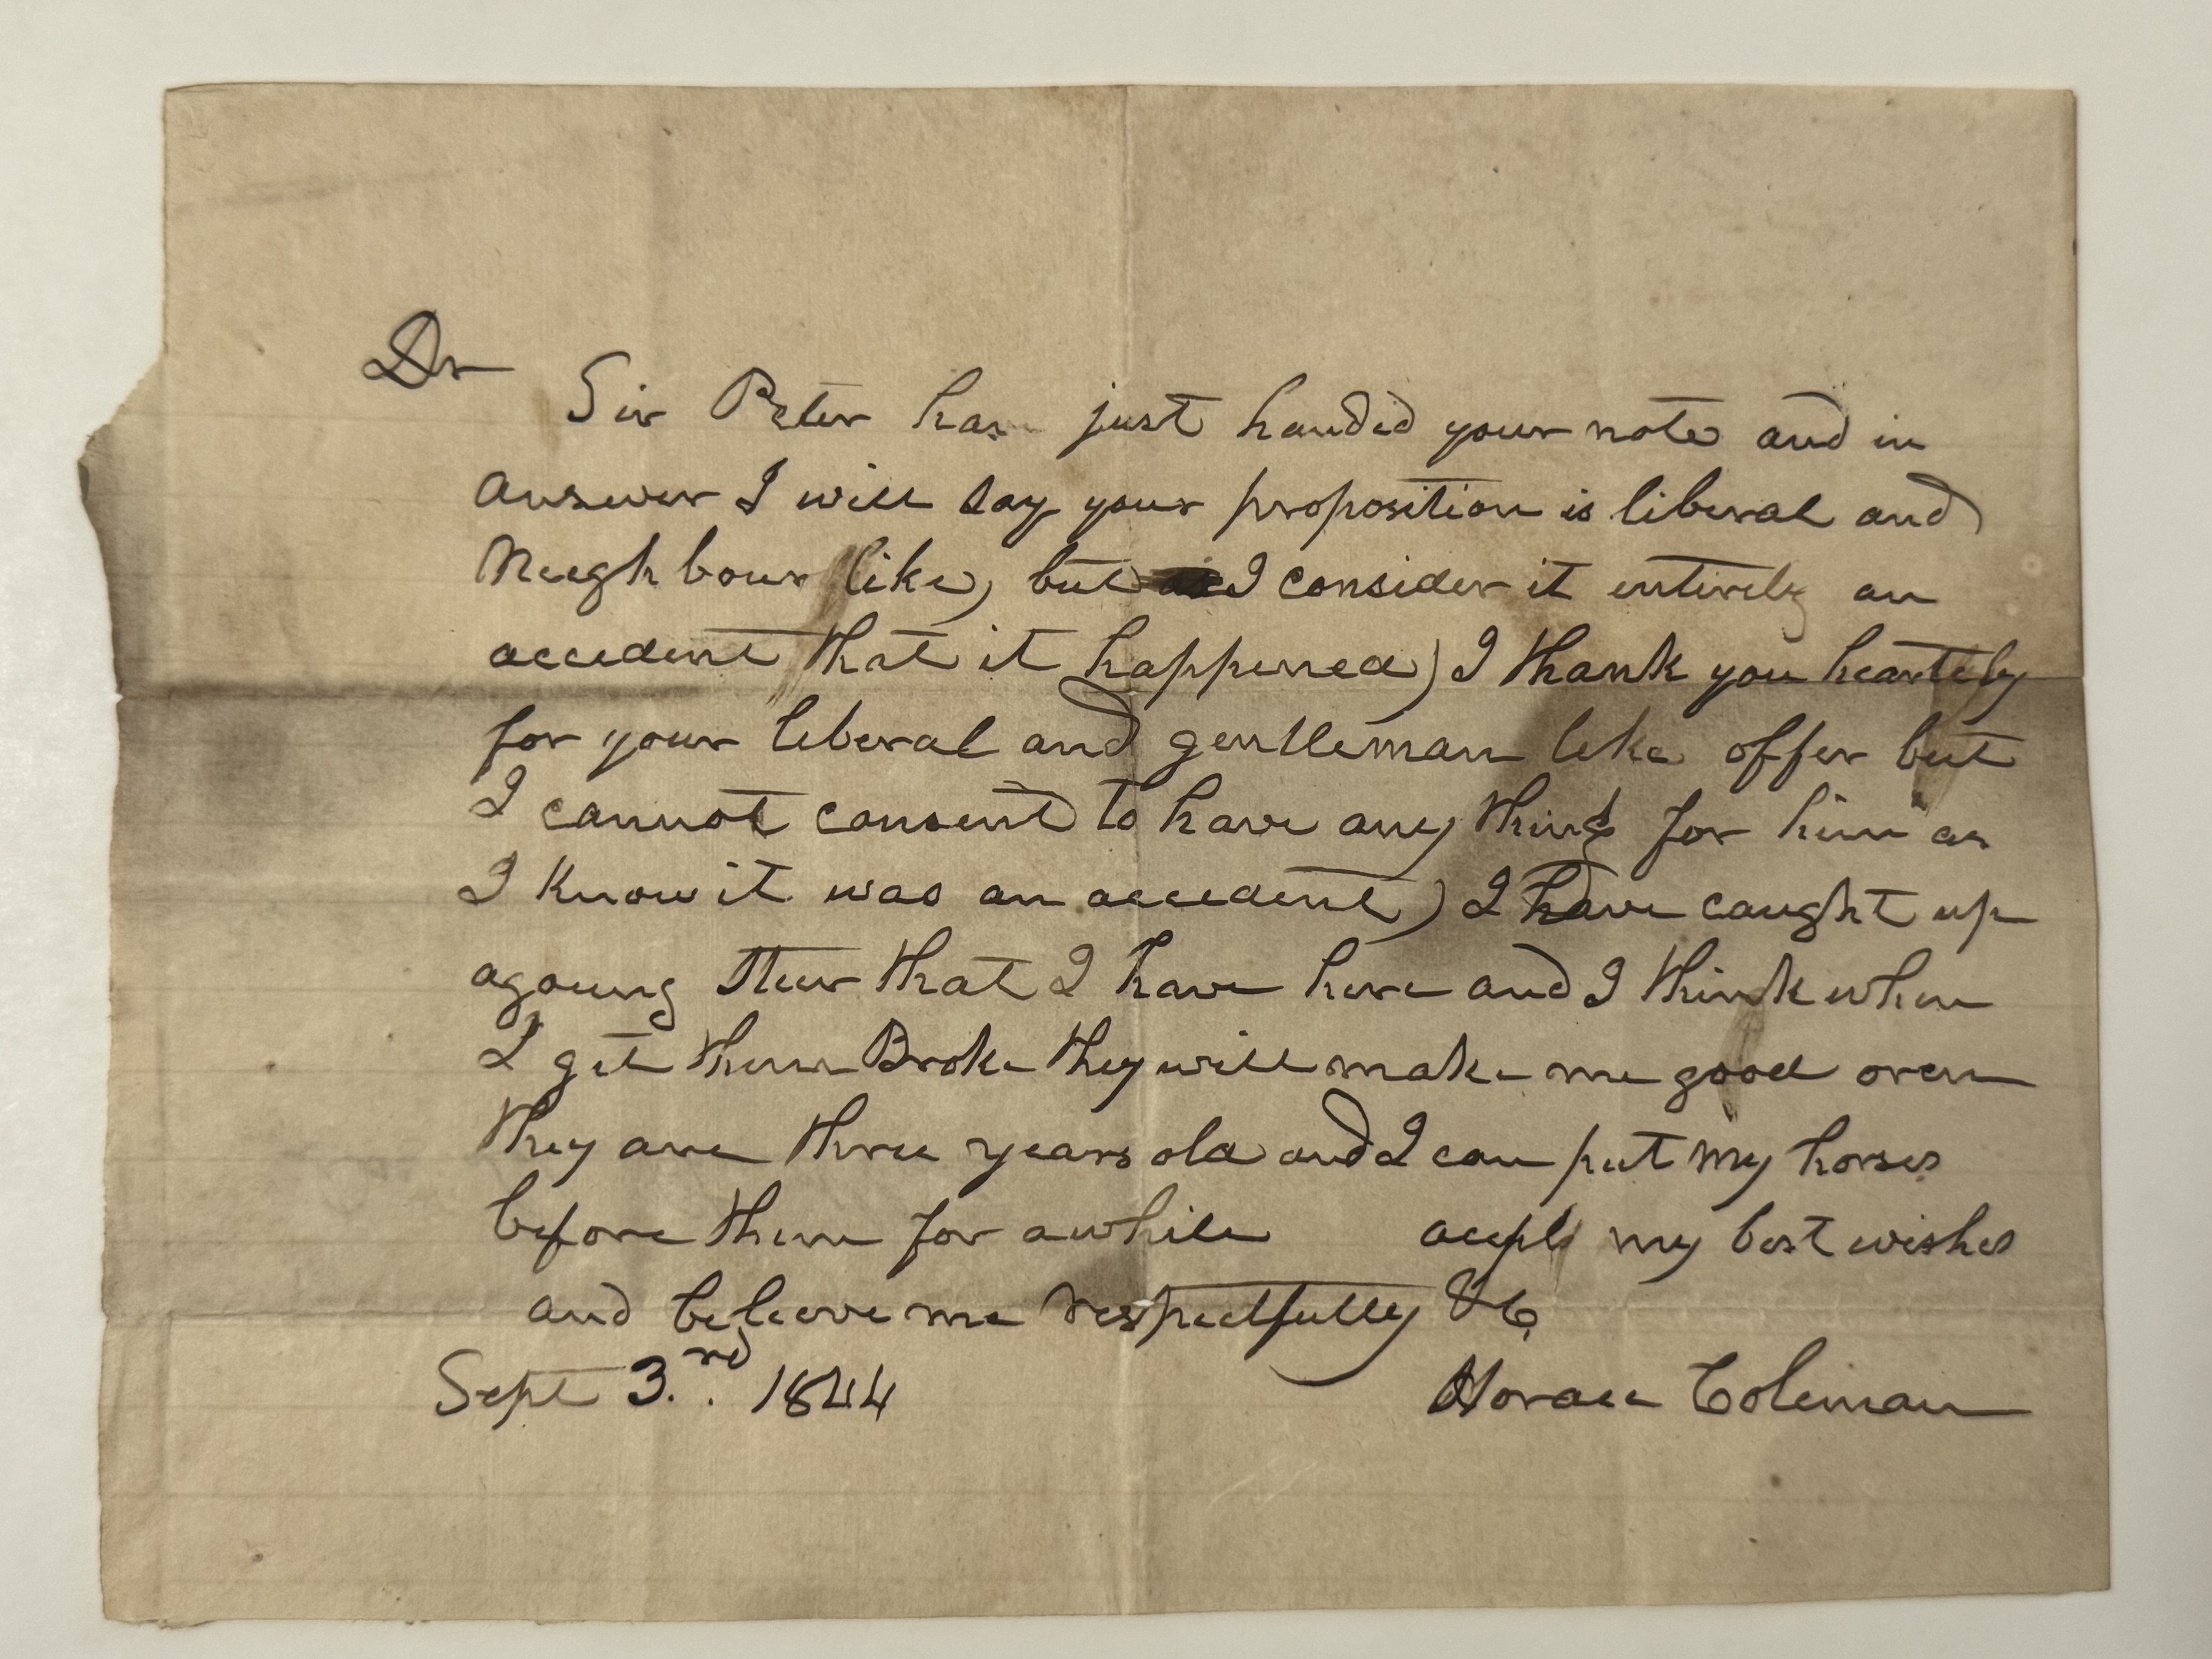 Dr
Sir Peter has just handed your note and in
answer I will say your proposition is liberal and
Neeghbour like, but I consider it entirely an
accedent that it happened) I thank you heartely
for your leberal and gentleman like offer but
I cannot consent to have any thing for him as
I know it was an accedent) I have caught up
a young Steer that I have here and I think when
I get them Broke they will make me good oxen
they are three years old and I can put my horses
before them for awhile acept my best wishes
and beleeve me respectfully &c
Sept 3.rd 1844 Horace Coleman